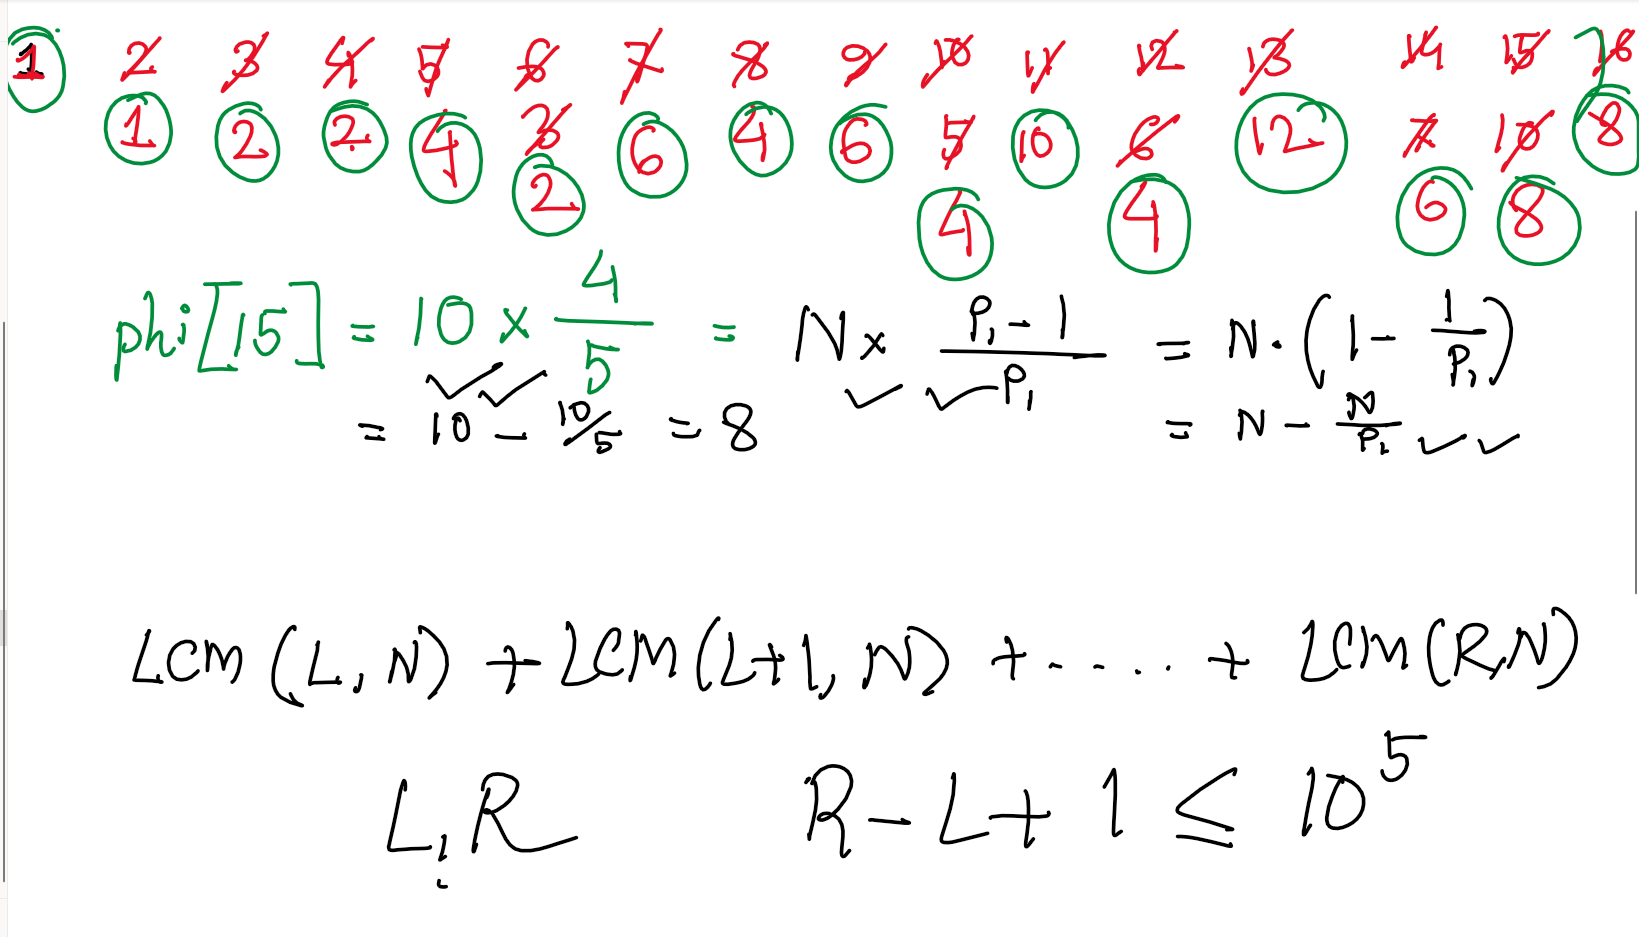 1 2 3 4 5 6 7 8 9 10 11 12 13 14 15 16
1 2 2 4 3 6 4 6 5 10 6 12 7 10 8
2 4 4 6 8
phi[15] = 10 x 4/5 = N x (P₁-1)/P₁ = N.(1-1/P₁)
= 10 - 10/5 = 8 = N - N/P₁
LCM(L,N) + LCM(L+1,N) + ..... + LCM(R,N)
L,R R-L+1 ≤ 10⁵